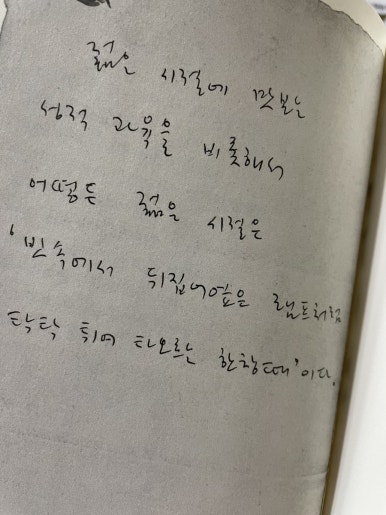 젊은 시절에 맛본
성적 과욕을 비롯해서
어떻든 젊은 시절은
'빈속에서 뒤집어엎은 램프처럼
탁탁 튀며 타오르는 한창때'이다.